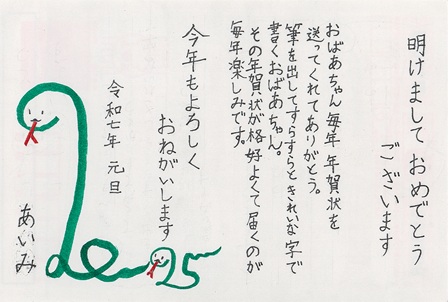 明けまして おめでとう
ございます
おばあちゃん 毎年 年賀状を
送ってくれてありがとう。
筆を出してすらすらときれいな字で
書くおばあちゃん。
その年賀状が格好よくて届くのが
毎年楽しみです。
今年もよろしく
おねがいします
令和七年 元旦
あいみ
2025